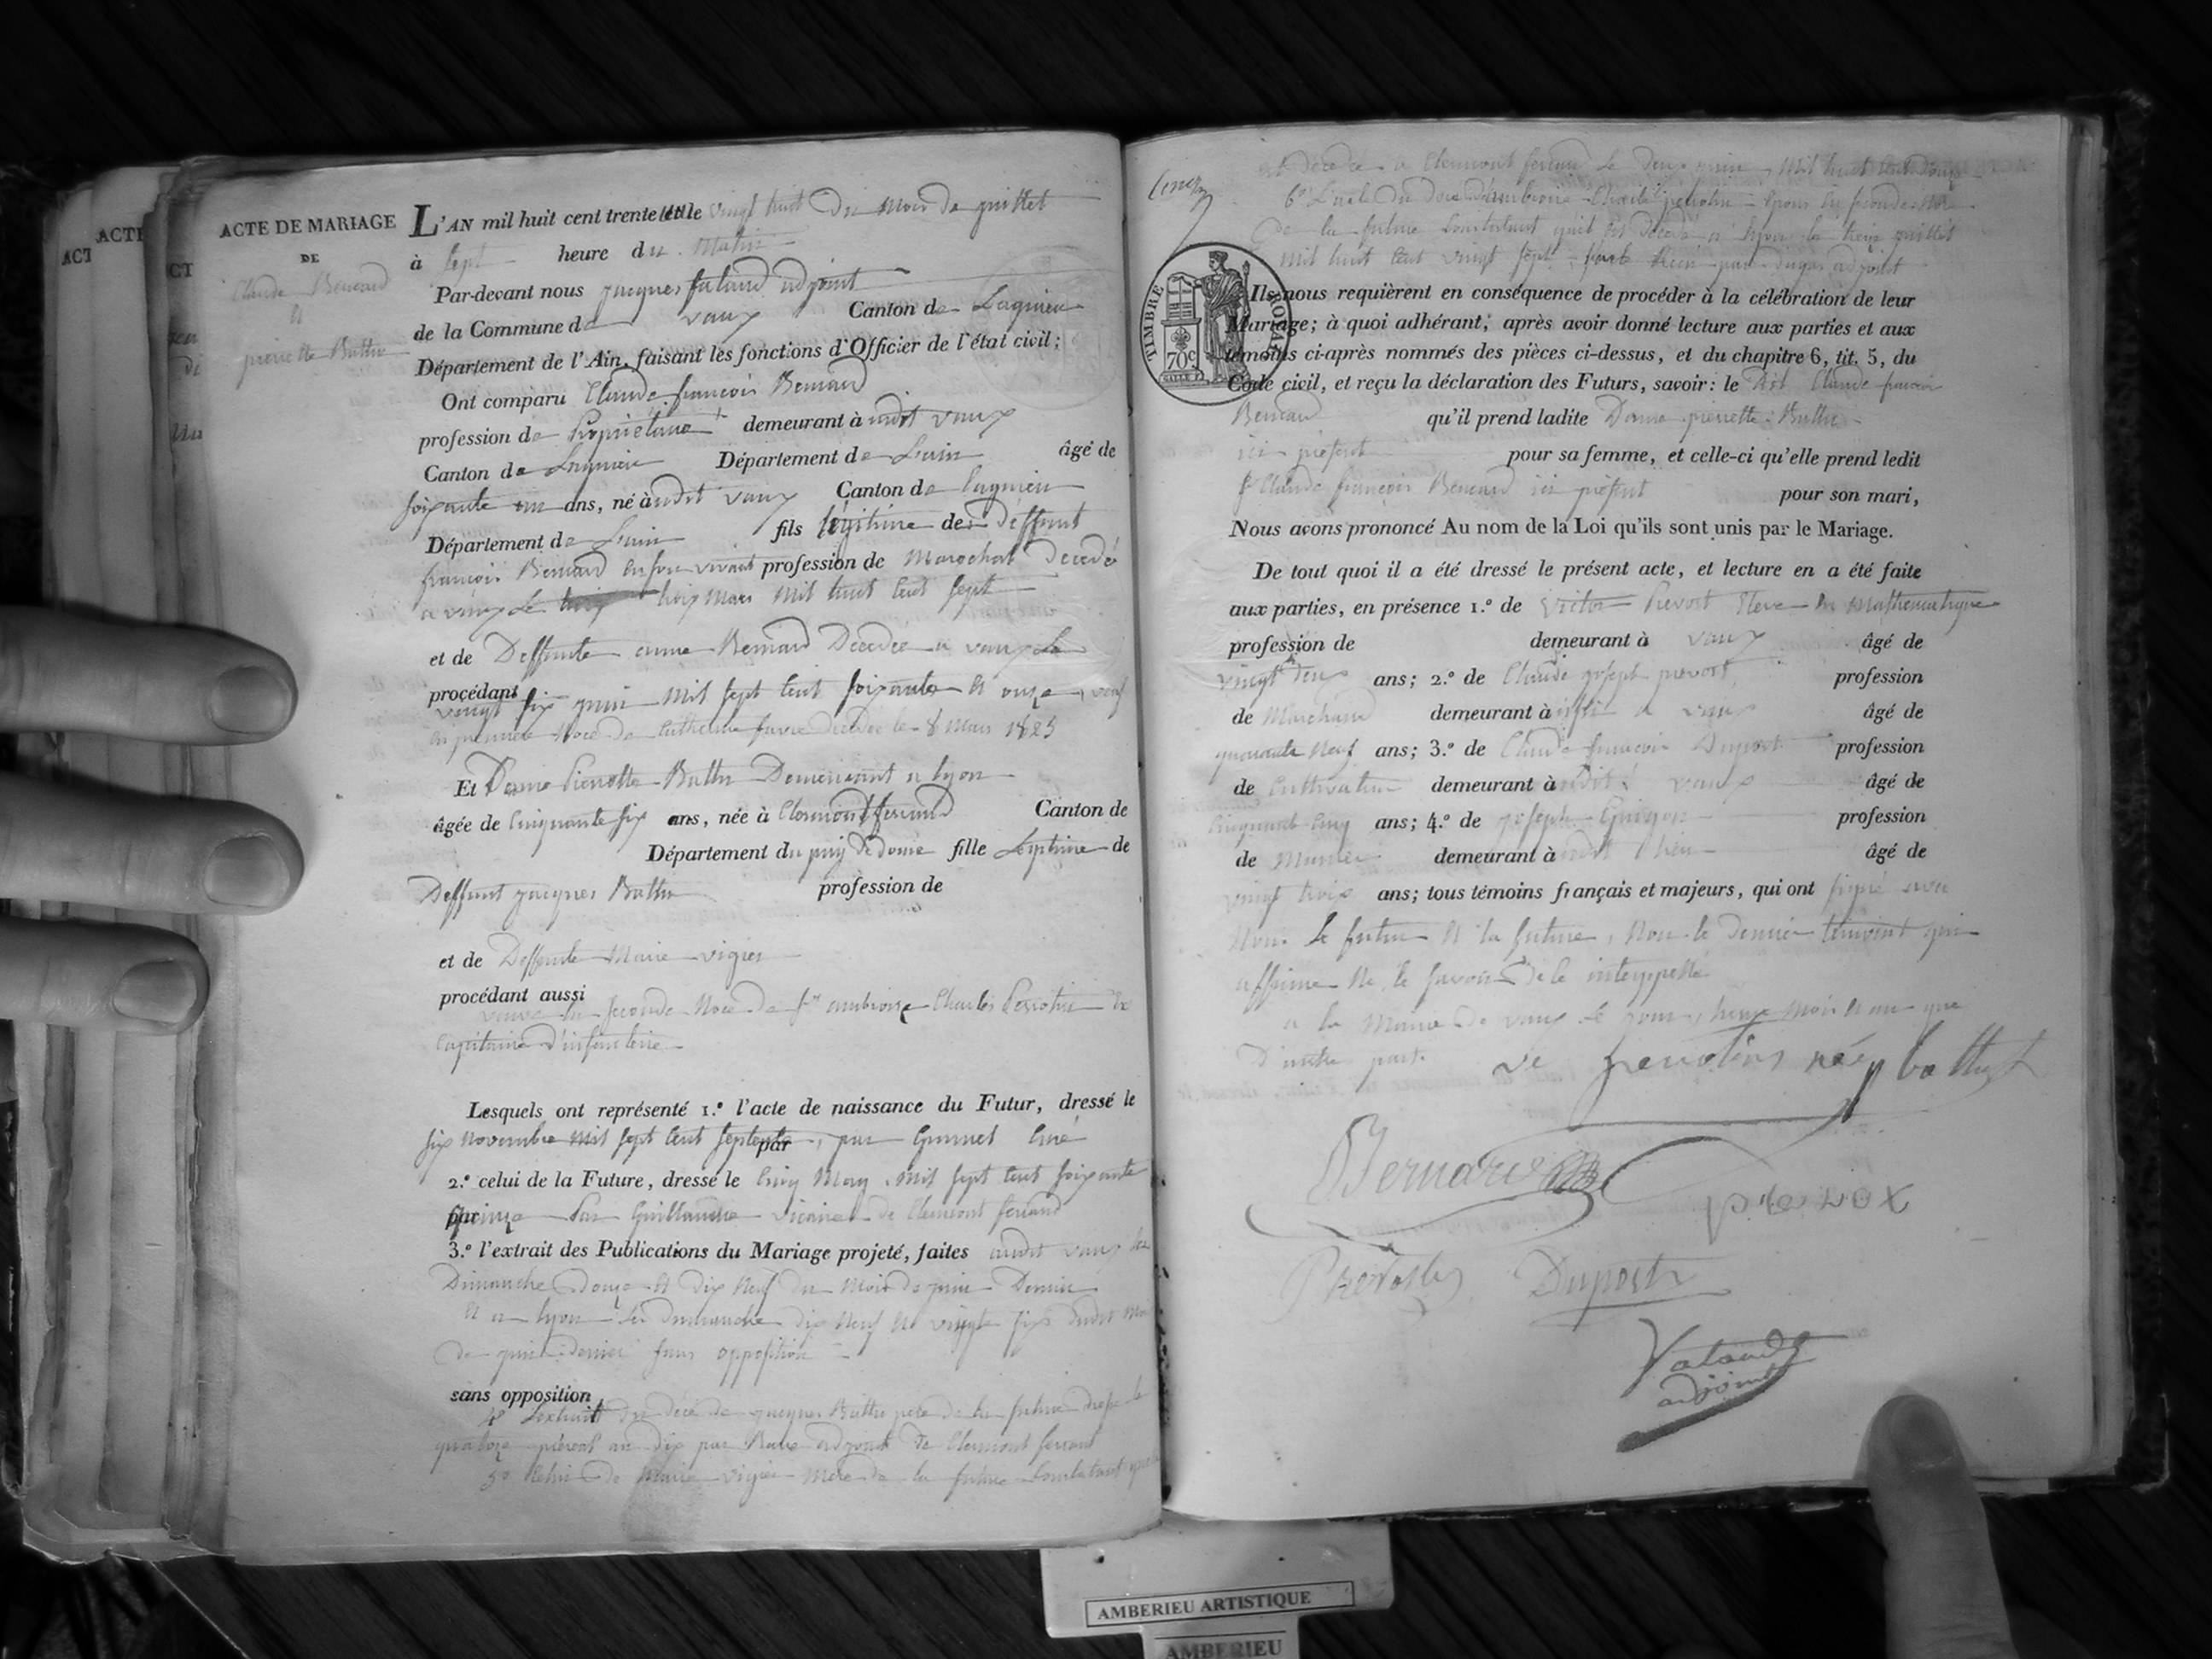 ACTE DE MARIAGE
DE
Claude Bernard
et
pierrette Buttin
L'AN mil huit cent trente et le vingt huit du Mois de juillet
à sept heure du Matin
Par-devant nous jacques adjoint
de la Commune de vaux Canton de Lagnieu
Département de l'Ain, faisant les fonctions d'Officier de l'état civil;
Ont comparu Claude françois Bernard
profession de Propriétaire demeurant à audit vaux
Canton de Lagnieu Département de Lain âgé de
soixante ans, né à audit vaux Canton de Lagnieu
Département de Lain fils légitime de deffunt
françois Bernard en son vivant profession de Marechal decedé
a vaux le trois Mars mil huit cent sept
et de Deffunte anne Bernard Décédée a vaux Le
procédant
vingt six juin mil sept cent soixante et onze, veuf
en premiere Noce de Catherine favre decedee le 8 Mars 1825
Et Dame Pierrette Demeurant a lyon
âgée de Cinquante six ans, née à Clermont ferrand Canton de
Département du puy de dome fille Legitime de
Deffunt jacques profession de
et de Deffunte Marie vigier
procédant aussi
veuve en seconde Noce de Sr ambroise Charles Perrotin
Capitaine d'infanterie
Lesquels ont représenté 1.º l'acte de naissance du Futur, dressé le
six Novembre mil sept cent septante, par par curé
2.º celui de la Future, dressé le Cinq May mil sept cent soixante
quinze Par Guillaume vicaire de Clermont ferrand
3.º l'extrait des Publications du Mariage projeté, faites audit vaux les
Dimanche douze et dix Neuf du Mois de juin Dernier
et a lyon les dimanche dix Neuf et vingt six dudit Mois
de juin dernier sans opposition
sans opposition
4º Lextrait du décé de jacques pere de la future dressé le
quatorze an dix par adjoint de Clermont ferrand
5º Celui de Marie vigier Mere de la future Constatant
est décédée a Clermont ferrand le deux juin mil huit cent
6º L'acte du décé d'ambroise Charles perrotin Epoux en seconde Noce
de la future Constatant quil est décédé a lyon le treize juillet
mil huit cent vingt sept par adjoint
TIMBRE ROYAL
70c
Ils nous requièrent en conséquence de procéder à la célébration de leur
Mariage; à quoi adhérant, après avoir donné lecture aux parties et aux
témoins ci-après nommés des pièces ci-dessus, et du chapitre 6, tit. 5, du
Code civil, et reçu la déclaration des Futurs, savoir: le dit Claude francois
Bernard qu'il prend ladite Dame pierrette
ici présent pour sa femme, et celle-ci qu'elle prend ledit
Sr Claude françois Bernard ici présent pour son mari,
Nous avons prononcé Au nom de la Loi qu'ils sont unis par le Mariage.
De tout quoi il a été dressé le présent acte, et lecture en a été faite
aux parties, en présence 1.º de Victor Prevost Eleve en Mathematique
profession de demeurant à vaux âgé de
vingt deux ans; 2.º de Claude joseph prevost profession
de Marchand demeurant à a vaux âgé de
quarante Neuf ans; 3.º de Claude francois Duport profession
de Cultivateur demeurant à audit vaux âgé de
Cinquante Cinq ans; 4.º de joseph profession
de demeurant à audit lieu âgé de
vingt trois ans; tous témoins français et majeurs, qui ont signé avec
Nous le futur et la future, Non le dernier témoin qui
affirme Ne le savoir de ce interpellé
a la Mairie de vaux le jour, heure Mois et an que
D'autre part. ve perrotin née
Bernard
prevox
Prevost Duport
adjoint
AMBERIEU ARTISTIQUE
AMBERIEU